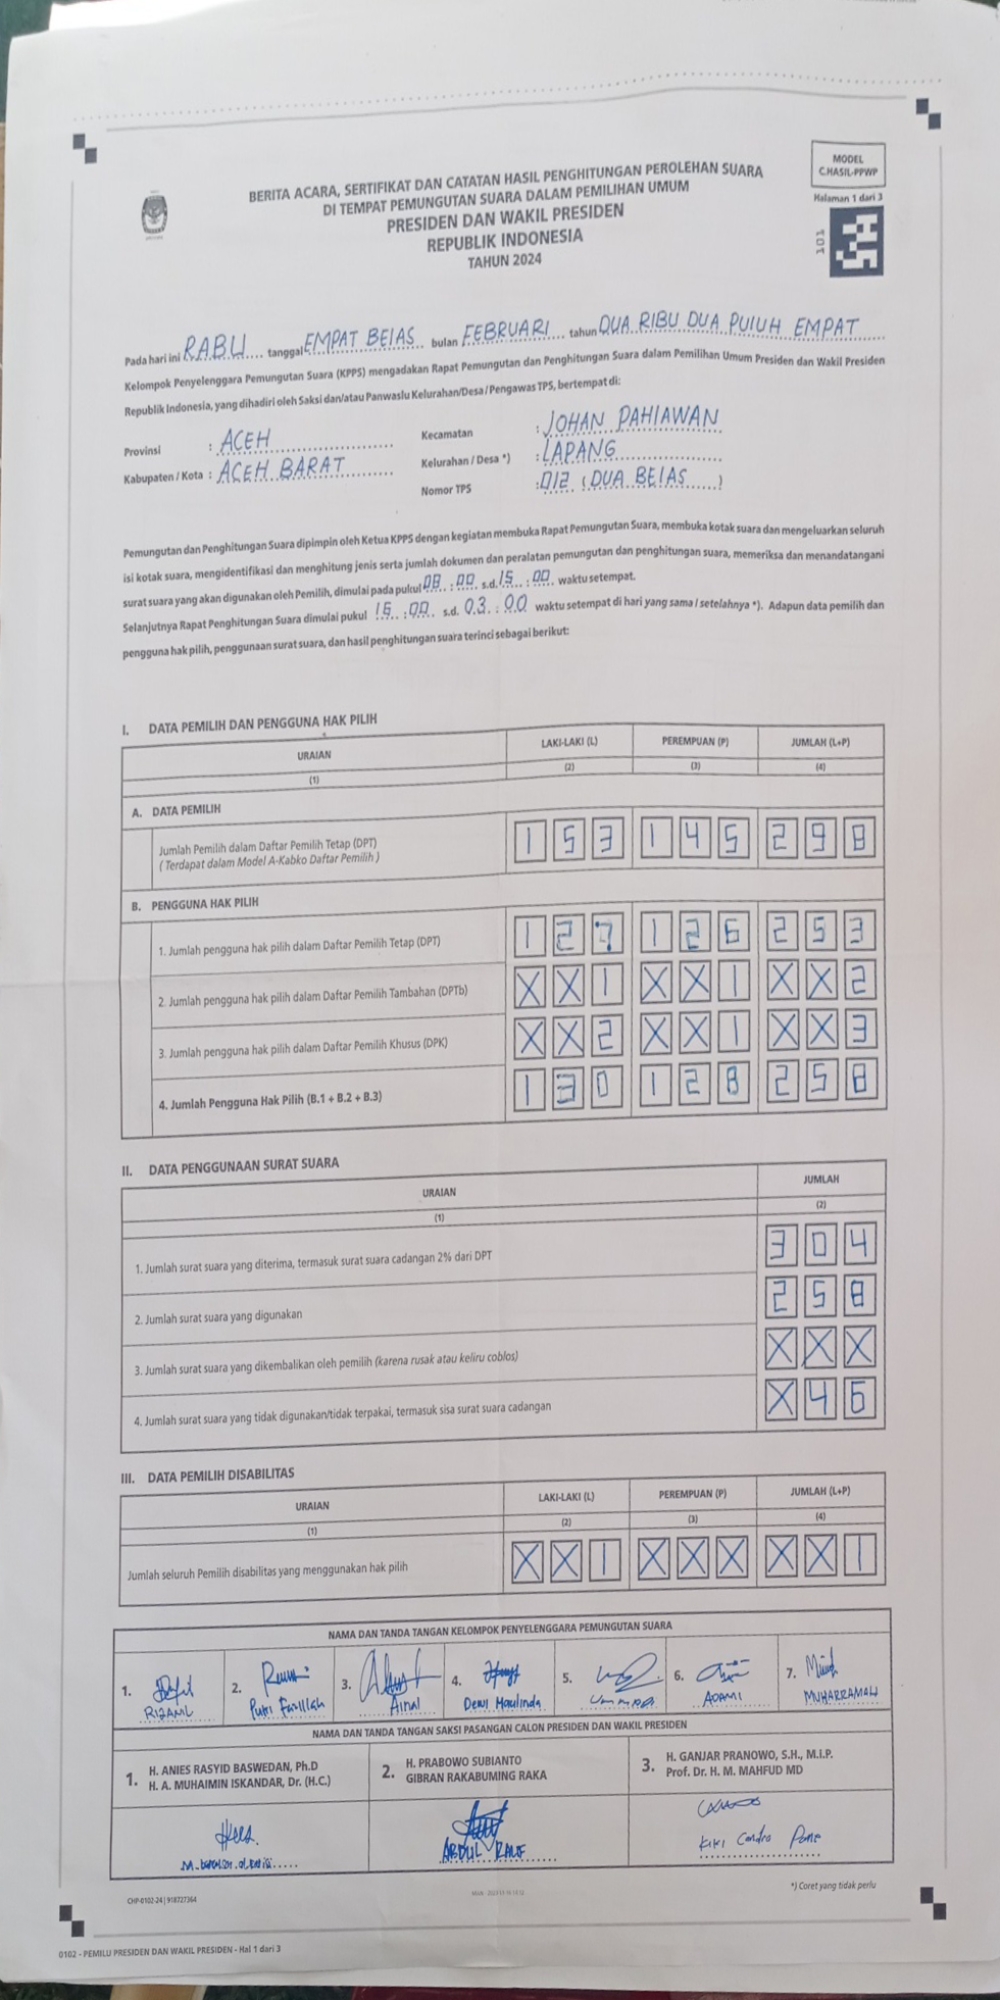 MODEL
C.HASIL-PPWP
Halaman 1 dari 3
101
BERITA ACARA, SERTIFIKAT DAN CATATAN HASIL PENGHITUNGAN PEROLEHAN SUARA
DI TEMPAT PEMUNGUTAN SUARA DALAM PEMILIHAN UMUM
PRESIDEN DAN WAKIL PRESIDEN
REPUBLIK INDONESIA
TAHUN 2024
Pada hari ini RABU tanggal EMPAT BElAS bulan FEBRUARI tahun DUA RIBU DUA PUlUH EMPAT
Kelompok Penyelenggara Pemungutan Suara (KPPS) mengadakan Rapat Pemungutan dan Penghitungan Suara dalam Pemilihan Umum Presiden dan Wakil Presiden
Republik Indonesia, yang dihadiri oleh Saksi dan/atau Panwaslu Kelurahan/Desa/Pengawas TPS, bertempat di:
Provinsi : ACEH Kecamatan : JOHAN PAHlAWAN
Kabupaten / Kota : ACEH BARAT Kelurahan / Desa *) : LAPANG
Nomor TPS : 012 (DUA BElAS)
Pemungutan dan Penghitungan Suara dipimpin oleh Ketua KPPS dengan kegiatan membuka Rapat Pemungutan Suara, membuka kotak suara dan mengeluarkan seluruh
isi kotak suara, mengidentifikasi dan menghitung jenis serta jumlah dokumen dan peralatan pemungutan dan penghitungan suara, memeriksa dan menandatangani
surat suara yang akan digunakan oleh Pemilih, dimulai pada pukul 08 : 00 s.d. 15 : 00 waktu setempat.
Selanjutnya Rapat Penghitungan Suara dimulai pukul 15 : 00 s.d. 03 : 00 waktu setempat di hari yang sama / setelahnya *). Adapun data pemilih dan
pengguna hak pilih, penggunaan surat suara, dan hasil penghitungan suara terinci sebagai berikut:
I. DATA PEMILIH DAN PENGGUNA HAK PILIH
URAIAN LAKI-LAKI (L) PEREMPUAN (P) JUMLAH (L+P)
(1) (2) (3) (4)
A. DATA PEMILIH
Jumlah Pemilih dalam Daftar Pemilih Tetap (DPT) 1 5 3 1 4 5 2 9 8
( Terdapat dalam Model A-Kabko Daftar Pemilih )
B. PENGGUNA HAK PILIH
1. Jumlah pengguna hak pilih dalam Daftar Pemilih Tetap (DPT) 1 2 7 1 2 6 2 5 3
2. Jumlah pengguna hak pilih dalam Daftar Pemilih Tambahan (DPTb) X X 1 X X 1 X X 2
3. Jumlah pengguna hak pilih dalam Daftar Pemilih Khusus (DPK) X X 2 X X 1 X X 3
4. Jumlah Pengguna Hak Pilih (B.1 + B.2 + B.3) 1 3 0 1 2 8 2 5 8
II. DATA PENGGUNAAN SURAT SUARA
URAIAN JUMLAH
(1) (2)
1. Jumlah surat suara yang diterima, termasuk surat suara cadangan 2% dari DPT 3 0 4
2. Jumlah surat suara yang digunakan 2 5 8
3. Jumlah surat suara yang dikembalikan oleh pemilih (karena rusak atau keliru coblos) X X X
4. Jumlah surat suara yang tidak digunakan/tidak terpakai, termasuk sisa surat suara cadangan X 4 6
III. DATA PEMILIH DISABILITAS
URAIAN LAKI-LAKI (L) PEREMPUAN (P) JUMLAH (L+P)
(1) (2) (3) (4)
Jumlah seluruh Pemilih disabilitas yang menggunakan hak pilih X X 1 X X X X X 1
NAMA DAN TANDA TANGAN KELOMPOK PENYELENGGARA PEMUNGUTAN SUARA
1. 2. 3. 4. 5. 6. 7.
Ainal Dewi Maulinda ADAMI
NAMA DAN TANDA TANGAN SAKSI PASANGAN CALON PRESIDEN DAN WAKIL PRESIDEN
1. H. ANIES RASYID BASWEDAN, Ph.D
H. A. MUHAIMIN ISKANDAR, Dr. (H.C.)
2. H. PRABOWO SUBIANTO
GIBRAN RAKABUMING RAKA
3. H. GANJAR PRANOWO, S.H., M.I.P.
Prof. Dr. H. M. MAHFUD MD
ABDUL
*) Coret yang tidak perlu
CHP-0102-24 | 918727364
0102 - PEMILU PRESIDEN DAN WAKIL PRESIDEN - Hal 1 dari 3